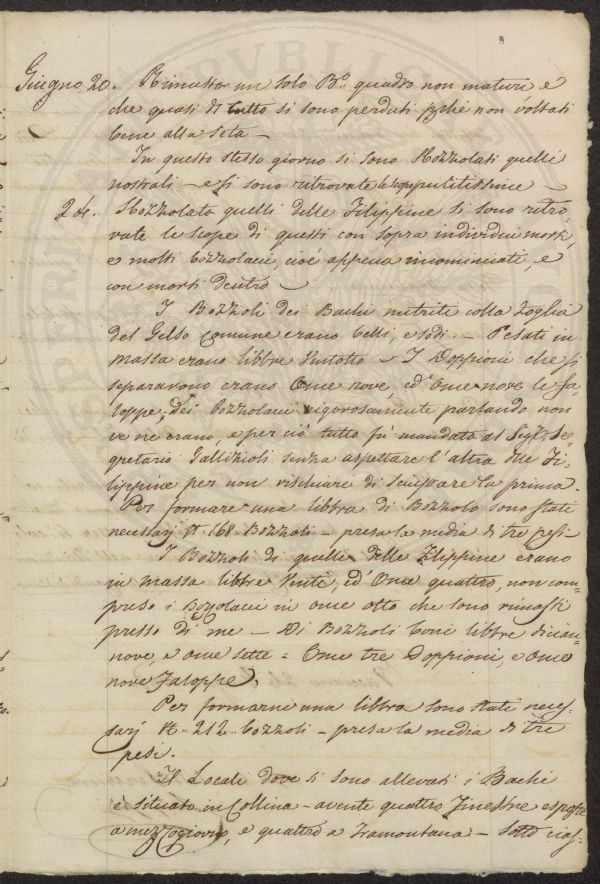 Giugno 20. Rimasto un solo B.º quadro non mature e
che quasi di tutto si sono perduti perchè non voltati
bene alla seta —
In questo stesso giorno si sono Sbozzolati quelli
nostrali — e si sono ritrovate le scope pulitissime —
24. Sbozzolato quelli delle Filippine si sono ritro=
vate le scope di questi con sopra individui morti,
e molti bozzolacci, cioè appena incominciati, e
con morti dentro —
I Bozzoli dei Bachi nutriti colla foglia
del Gelso comune erano belli, e sodi. — Pesati in
massa erano libbre Ventotto — I Doppioni che si
separarono erano Once nove, ed' Once nove le fa=
loppe; dei bozzolacci rigorosamente parlando non
ve ne erano, e per ciò tutto fù mandato al Sig.r Se=
gretario Gallizioli senza aspettare l'altra delle Fi=
lippine per non rischiare di sciupare la prima.
Per formare una libbra di Bozzolo sono stati
necessarj N. 168. Bozzoli — presa la media di tre pesi —
I Bozzoli di quelli delle Filippine erano
in massa libbre Venti, ed' Once quattro, non com=
preso i Bozzolacci in once otto che sono rimasti
presso di me — Di Bozzoli boni libbre dician=
nove, e once sette = Once tre Doppioni, e once
nove Faloppe.
Per formarne una libbra sono stati neces=
sarj N.. 212.. bozzoli — presa la media di tre
pesi.
Il Locale dove si sono allevati i Bachi
è situato in Collina — avente quattro Finestre esposte
a mezzogiorno, e quattro a Tramontana — sotto cias=